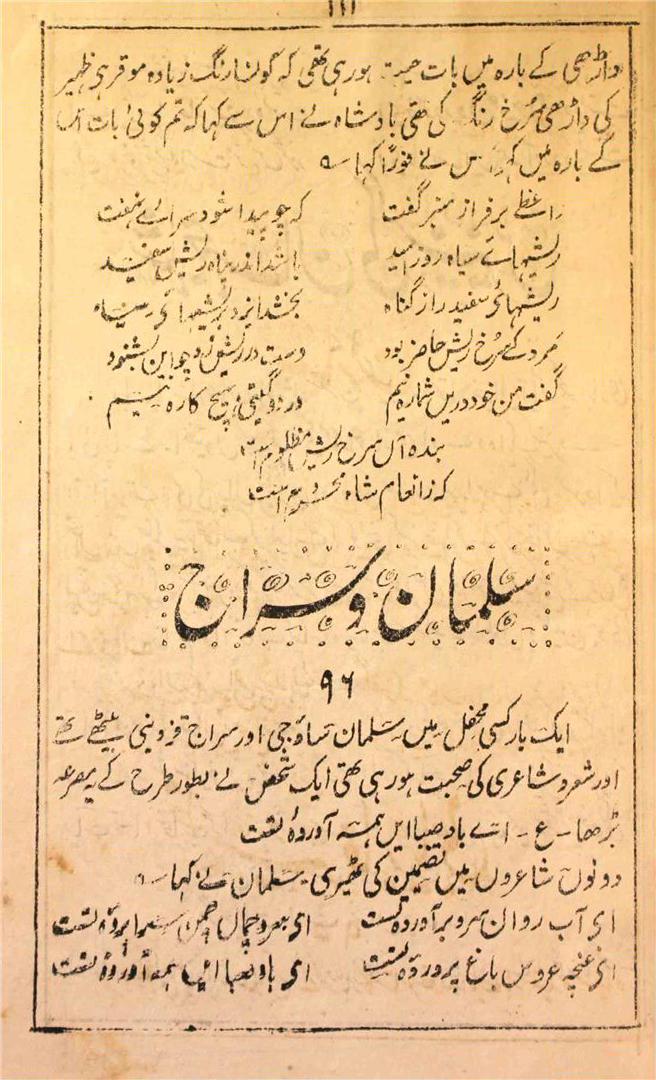 ۱۱۱
داڑھی کے بارہ میں بات چیت ہو رہی تھی کہ کونسا رنگ زیادہ موقر ہی ظہیر
کی داڑھی سرخ رنگ کی تھی بادشاہ نے اس سے کہا کہ تم کوئی بات اس
کے بارہ میں کہو اس نے فوراً کہا ؎
واعظے بر فراز منبر گفت کہ چو پیدا شود سرائے نہفت
ریشہائے سیاہ روز امید باشد اندر پناہ ریش سفید
ریشہائے سفید را ز گناہ بخشد ایزد بہ ریشہائے سیاہ
مردکے سرخ ریش حاضر بود دست در ریش زد چو این بشنود
گفت من خود دریں شمارہ نیم در دو گیتی بہیچ کارہ نیم
بندہ آں سرخ ریش مظلوم است
کہ ز انعام شاہ محروم است
سلمان و سراج
۹۶
ایک بار کسی محفل میں سلمان ساؤجی اور سراج قزوینی بیٹھے تھے
اور شعر و شاعری کی صحبت ہو رہی تھی ایک شخص نے بطور طرح کے یہ مصرعہ
پڑھا - ع - اے باد صبا ایں ہمہ آوردۂ تست
دونوں شاعروں میں تضمین کی ٹھیری۔ سلمان نے کہا ؎
ای آب رواں سرو بر آوردہ تست ای سرو چماں چمن سرا پردۂ تست
ای غنچہ عروس باغ پروردہ تست ای باد صبا ایں ہمہ آوردۂ تست